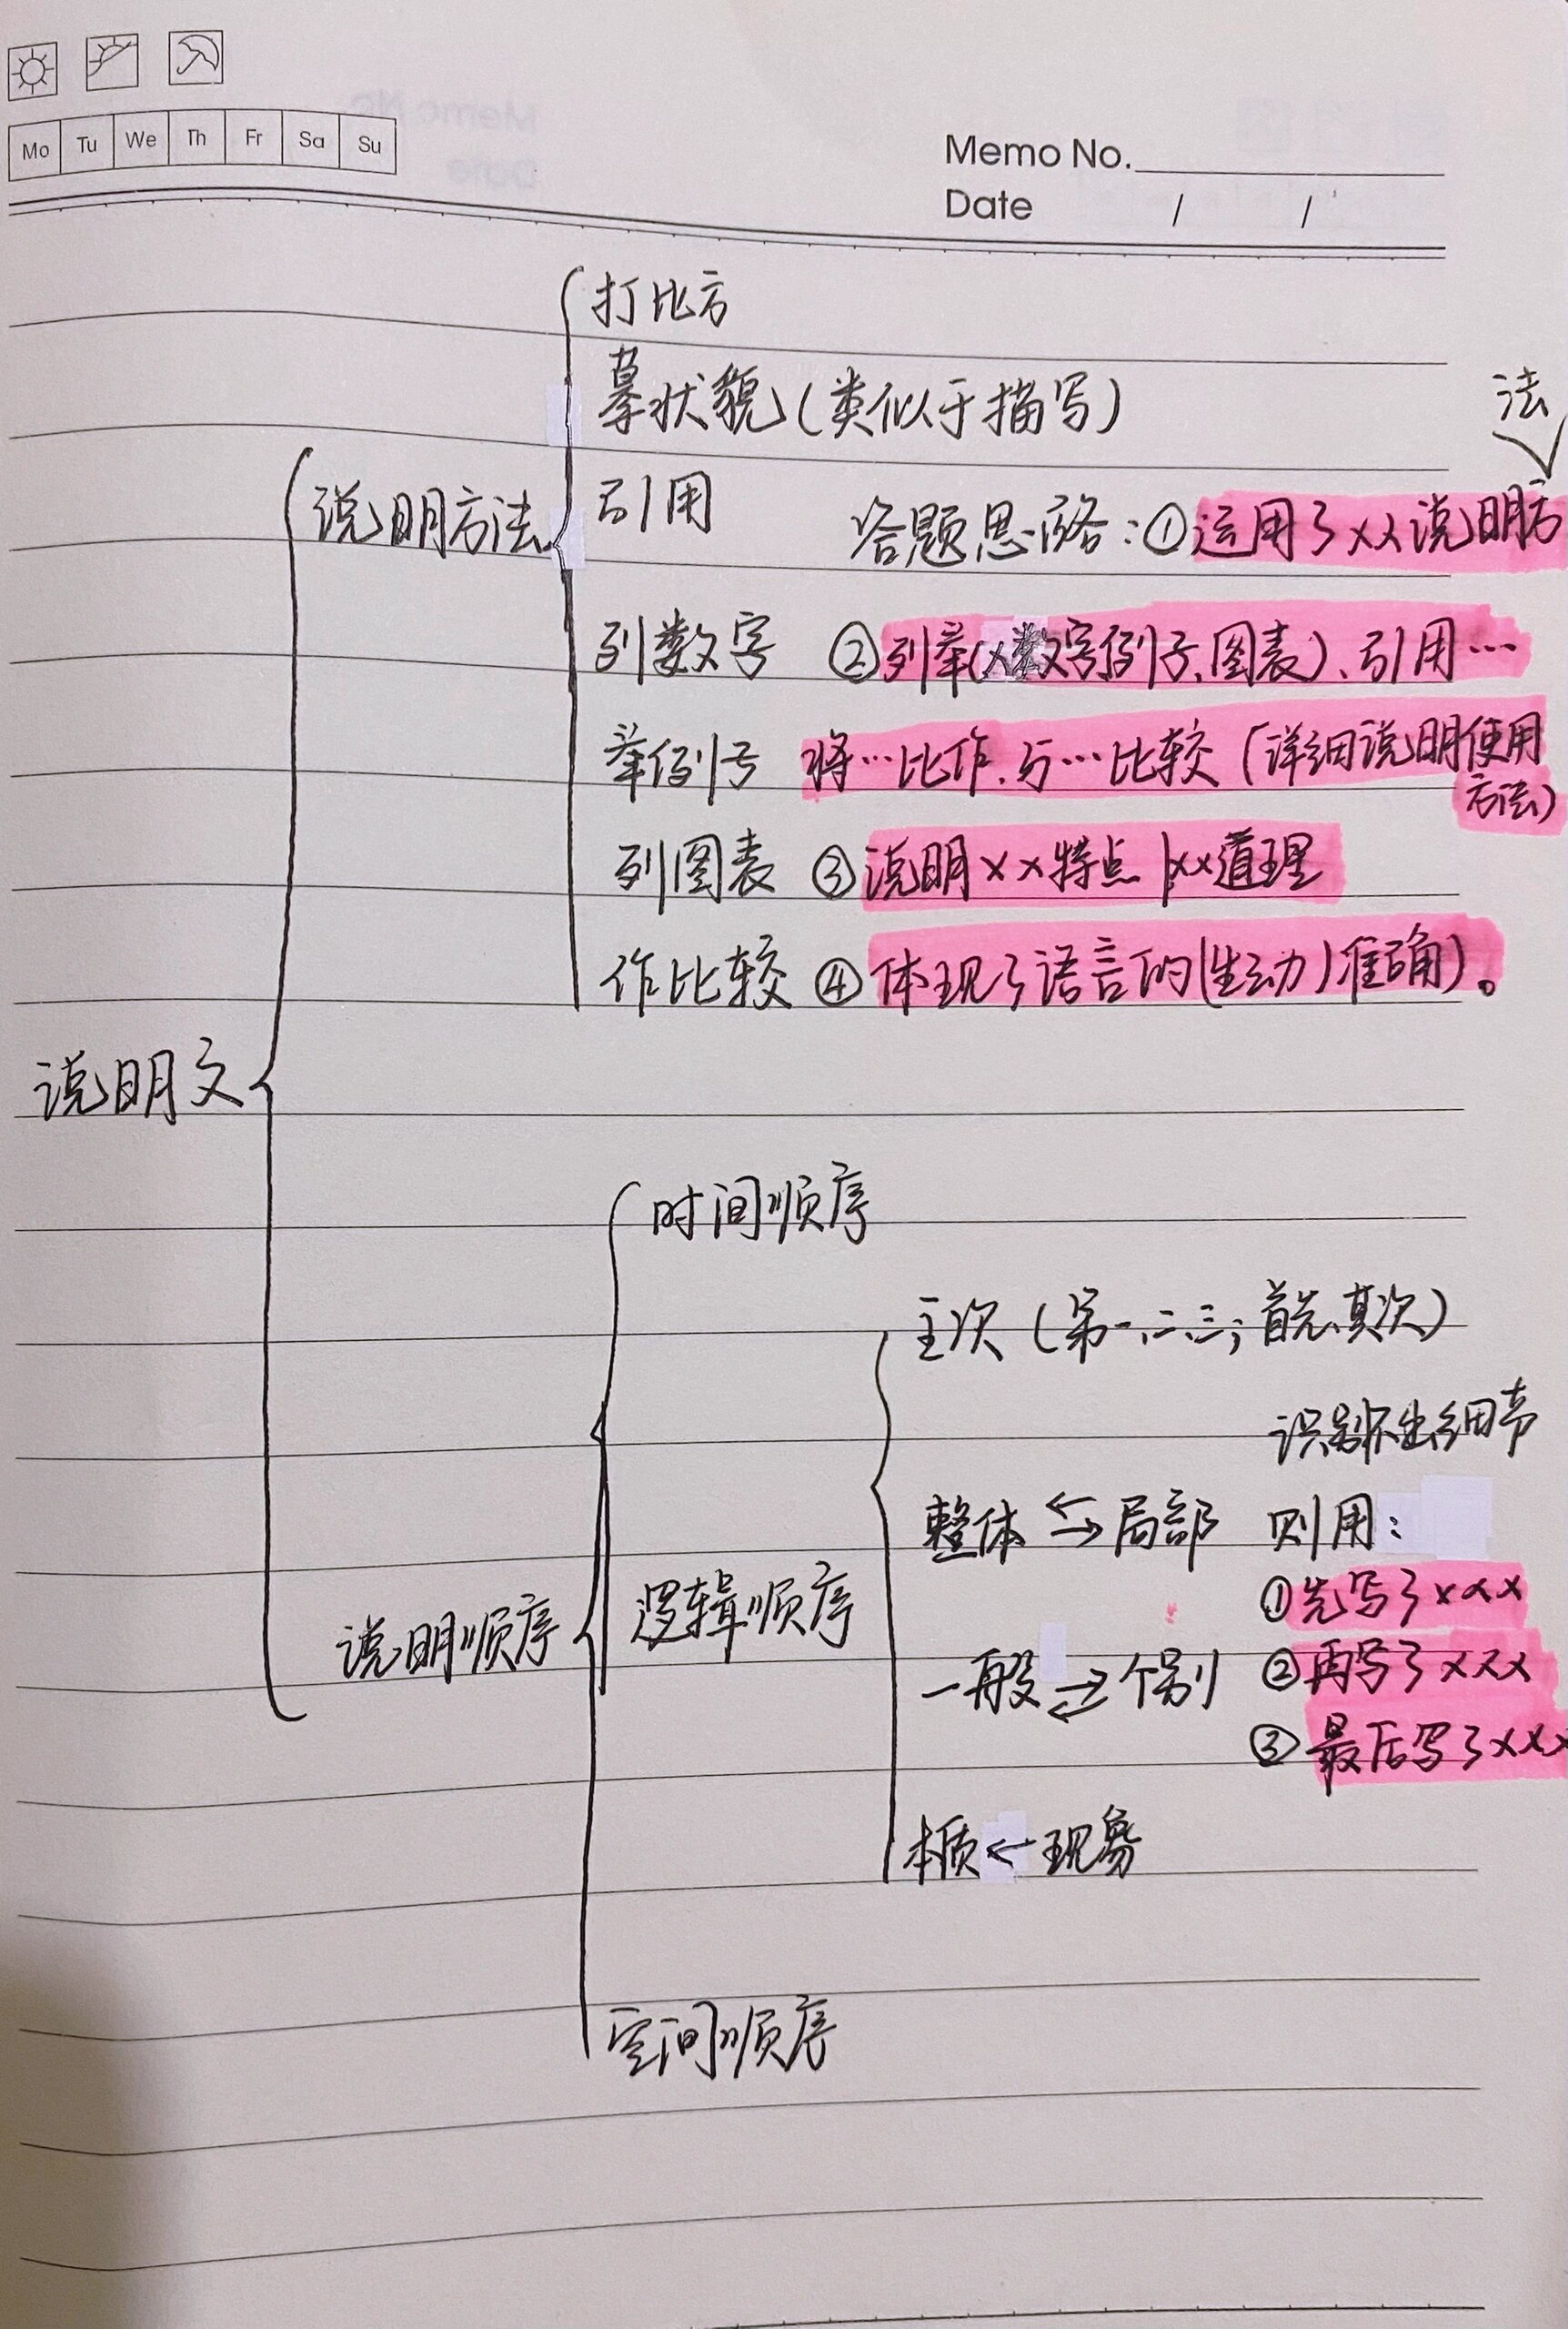 Mo Tu We Th Fr Sa Su
Memo No.
Date / /
打比方
摹状貌(类似于描写)
法
说明方法
引用
答题思路:①运用了××说明方
列数字 ②列举(×数字例子、图表)、引用…
举例子 将…比作、与…比较(详细说明使用
方法)
列图表 ③说明××特点|××道理
作比较 ④体现了语言的(生动)准确)。
说明文
时间顺序
主次(第一、二、三;首先、其次)
细节
整体⇄局部 则用:
①先写了×××
说明顺序
逻辑顺序
一般⇄个别 ②再写了×××
③最后写了×××
本质←现象
空间顺序